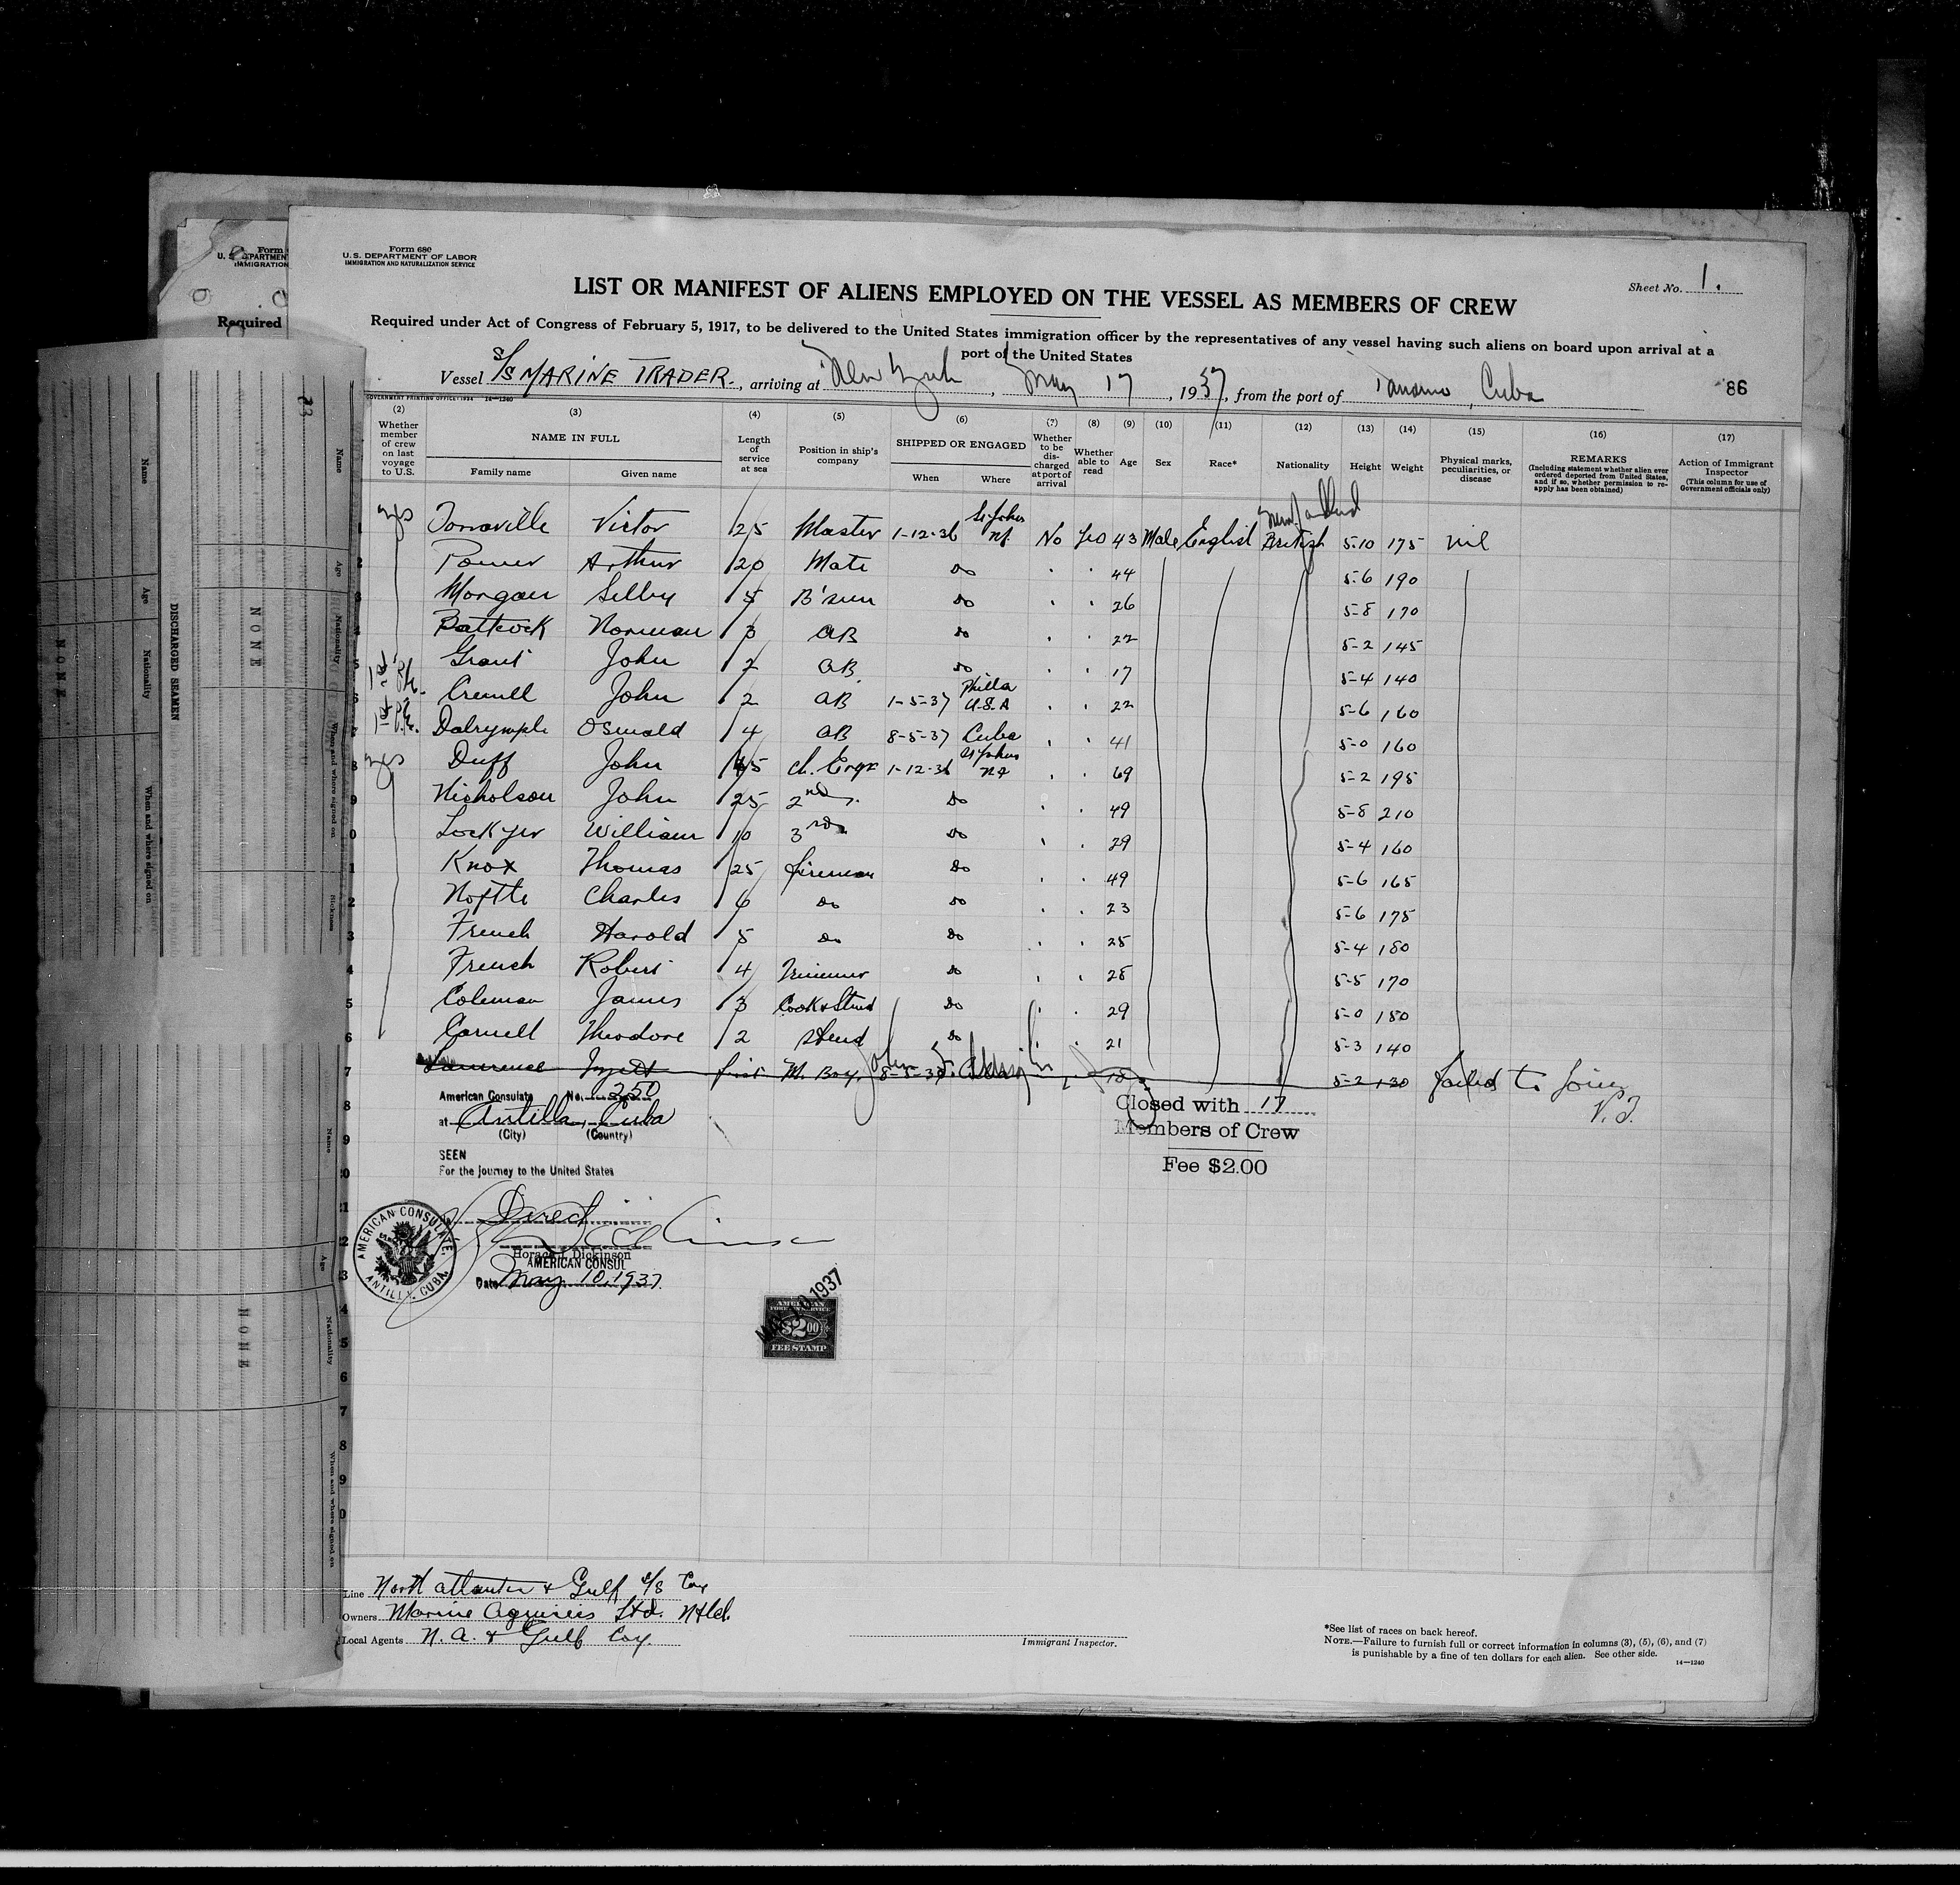 Form 680
U. S. DEPARTMENT OF LABOR
IMMIGRATION AND NATURALIZATION SERVICE
Sheet No. 1.
LIST OR MANIFEST OF ALIENS EMPLOYED ON THE VESSEL AS MEMBERS OF CREW
Required under Act of Congress of February 5, 1917, to be delivered to the United States immigration officer by the representatives of any vessel having such aliens on board upon arrival at a
port of the United States
Vessel S/S MARINE TRADER, arriving at New York, May 17, 1937, from the port of Tanamo, Cuba
86
GOVERNMENT PRINTING OFFICE: 1934 14—1240
(2) (3) (4) (5) (6) (7) (8) (9) (10) (11) (12) (13) (14) (15) (16) (17)
Whether member of crew on last voyage to U.S.
NAME IN FULL
Family name Given name
Length of service at sea
Position in ship's company
SHIPPED OR ENGAGED
When Where
Whether to be discharged at port of arrival
Whether able to read
Age
Sex
Race*
Nationality
Height
Weight
Physical marks, peculiarities, or disease
REMARKS
(Including statement whether alien ever ordered deported from United States, and if so, whether permission to reapply has been obtained)
Action of Immigrant Inspector
(This column for use of Government officials only)
1 yes Victor 25 Master 1-12-36 St. Johns Nf. No Yes 43 Male English Newfoundland British 5-10 175 nil
2 Power Arthur 20 Mate Do 44 5-6 190
3 Morgan Selby 5 B'sun Do 26 5-8 170
4 Battcock Norman 3 AB Do 22 5-2 145
5 Grant John 2 AB Do 17 5-4 140
6 1st John 2 AB 1-5-37 Phila U.S.A 22 5-6 160
7 1st Dalrymple Oswald 4 AB 8-5-37 Cuba 41 5-0 160
8 yes Duff John 45 Ch. Engr 1-12-36 St Johns Nf 69 5-2 195
9 Nicholson John 25 2nd Do 49 5-8 210
0 Lockyer William 10 3rd Do 29 5-4 160
1 Knox Thomas 25 fireman Do 49 5-6 165
2 Noftle Charles 6 Do Do 23 5-6 175
3 French Harold 5 Do Do 25 5-4 180
4 French Robert 4 Trimmer Do 28 5-5 170
5 Coleman James 3 Cook & Stwd Do 29 5-0 150
6 Theodore 2 Stwd Do 21 5-3 140
7 Lawrence first M. Boy 8-5-37 18 5-2 130 failed to join
V.T.
American Consulate No. 250
at Antilla, Cuba
(City) (Country)
SEEN
For the journey to the United States
Direct
Horace J. Dickinson
AMERICAN CONSUL
Date May 10, 1937.
AMERICAN CONSULATE, ANTILLA, CUBA
Closed with 17
Members of Crew
Fee $2.00
AMERICAN
FOREIGN SERVICE
$2.00
FEE STAMP
1937
Line North Atlantic & Gulf S/S Coy
Owners Marine Agencies Ltd. Nfld.
Local Agents N. A. & Gulf Coy.
Immigrant Inspector.
*See list of races on back hereof.
NOTE.—Failure to furnish full or correct information in columns (3), (5), (6), and (7)
is punishable by a fine of ten dollars for each alien. See other side.
14—1240
Required
DISCHARGED SEAMEN
Name
Age
Nationality
When and where signed on
NONE
NONE
NONE